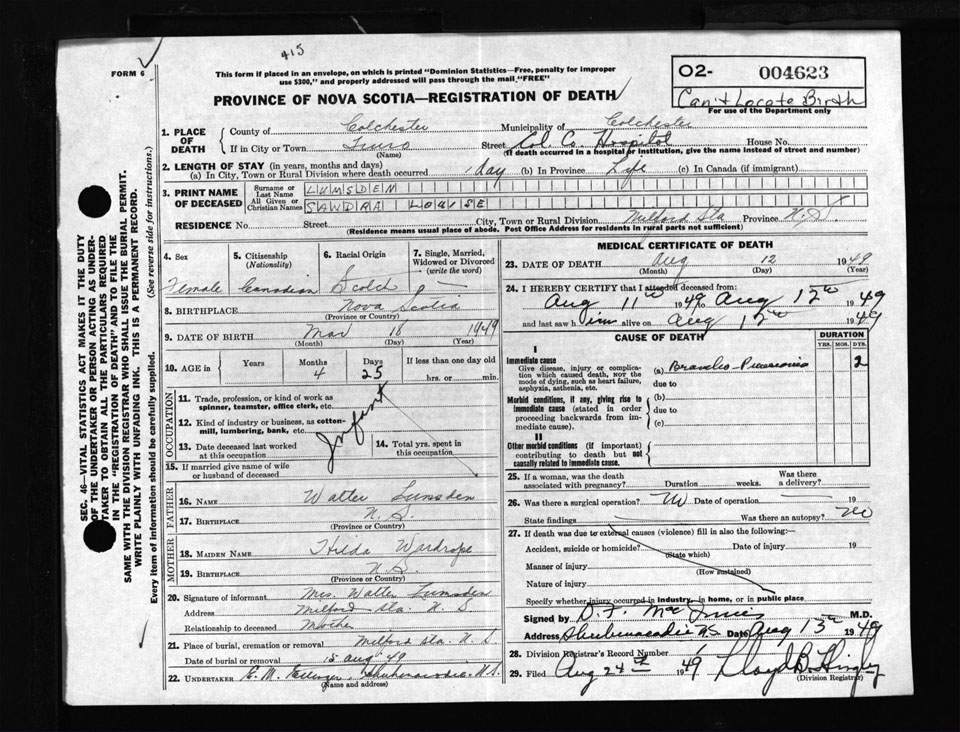 415
FORM 6
This form if placed in an envelope, on which is printed "Dominion Statistics—Free, penalty for improper
use $300," and properly addressed will pass through the mail "FREE"
O2- 004623
Can't Locate Birth
For use of the Department only
PROVINCE OF NOVA SCOTIA—REGISTRATION OF DEATH
1. PLACE OF DEATH
County of Colchester Municipality of Colchester
If in City or Town Truro Street Col. Co. Hospital House No.
(Name) (If death occurred in a hospital or institution, give the name instead of street and number)
2. LENGTH OF STAY (in years, months and days)
(a) In City, Town or Rural Division where death occurred 1 day (b) In Province Life (c) In Canada (if immigrant)
3. PRINT NAME OF DECEASED
Surname or Last Name LUMSDEN
All Given or Christian Names SANDRA LOUISE
RESIDENCE No. Street City, Town or Rural Division Milford Sta Province N.S.
(Residence means usual place of abode. Post Office Address for residents in rural parts not sufficient)
4. Sex
5. Citizenship
(Nationality)
6. Racial Origin
7. Single, Married, Widowed or Divorced
(write the word)
Female Canadian Scotch S —
8. BIRTHPLACE Nova Scotia
(Province or Country)
9. DATE OF BIRTH Mar 18 1949
(Month) (Day) (Year)
10. AGE in
Years Months Days If less than one day old
4 25 hrs. or min.
OCCUPATION
11. Trade, profession, or kind of work as
spinner, teamster, office clerk, etc.
12. Kind of industry or business, as cotton-
mill, lumbering, bank, etc.
Infant
13. Date deceased last worked
at this occupation
14. Total yrs. spent in
this occupation
15. If married give name of wife
or husband of deceased
FATHER
16. NAME Walter Lumsden
17. BIRTHPLACE N.S.
(Province or Country)
MOTHER
18. MAIDEN NAME Hilda Wardrope
19. BIRTHPLACE N.S.
(Province or Country)
20. Signature of informant Mrs. Walter Lumsden
Address Milford Sta. N.S
Relationship to deceased Mother
21. Place of burial, cremation or removal Milford Sta. N.S.
Date of burial or removal 15 aug '49
22. UNDERTAKER E. M. Shubenacadie. N.S.
(Name and address)
MEDICAL CERTIFICATE OF DEATH
23. DATE OF DEATH Aug 12 1949
(Month) (Day) (Year)
24. I HEREBY CERTIFY that I attended deceased from:
Aug 11th 1949 to Aug 12th 1949
and last saw him alive on Aug 12th 1949
CAUSE OF DEATH
DURATION
YRS. MOS. DYS.
I
Immediate cause
Give disease, injury or complica-
tion which caused death, not the
mode of dying, such as heart failure,
asphyxia, asthenia, etc.
(a) Broncho-Pneumonia 2
due to
Morbid conditions, if any, giving rise to
immediate cause (stated in order
proceeding backwards from im-
mediate cause).
(b)
due to
(c)
II
Other morbid conditions (if important)
contributing to death but not
causally related to immediate cause.
25. If a woman, was the death
associated with pregnancy? Duration weeks. Was there
a delivery?
26. Was there a surgical operation? No Date of operation 19
State findings Was there an autopsy? No
27. If death was due to external causes (violence) fill in also the following:
Accident, suicide or homicide? Date of injury 19
(State which)
Manner of injury
(How sustained)
Nature of injury
Specify whether injury occurred in industry, in home, or in public place
Signed by D. F. MacInnis M.D.
Address Shubenacadie N.S Date Aug 13th 1949
28. Division Registrar's Record Number
29. Filed Aug 24th 1949 Lloyd B.
(Division Registrar)
SEC. 46—VITAL STATISTICS ACT MAKES IT THE DUTY
OF THE UNDERTAKER OR PERSON ACTING AS UNDER-
TAKER TO OBTAIN ALL THE PARTICULARS REQUIRED
IN THE "REGISTRATION OF DEATH" AND TO FILE THE
SAME WITH THE DIVISION REGISTRAR WHO SHALL ISSUE THE BURIAL PERMIT.
WRITE PLAINLY WITH UNFADING INK. THIS IS A PERMANENT RECORD.
Every item of information should be carefully supplied. (See reverse side for instructions.)